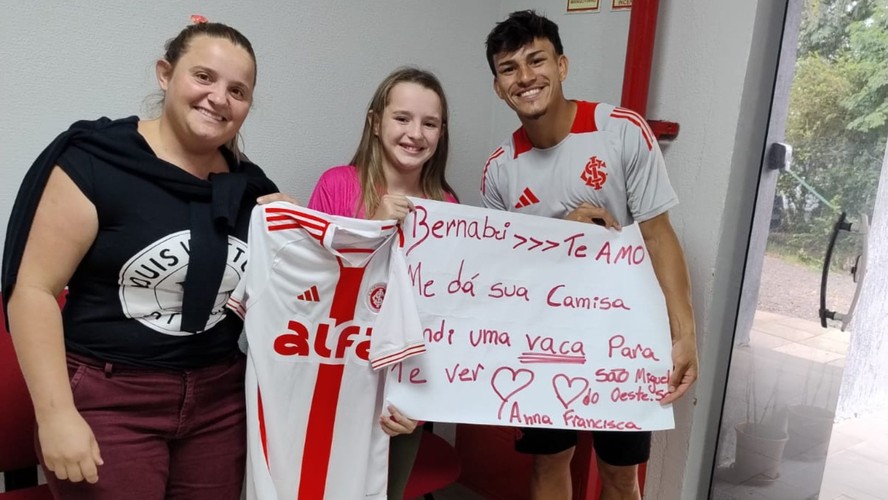 Bernabei >>> Te AMO
Me dá sua Camisa
ndi uma vaca Para
Te ver
São Miguel
do Oeste: SC
Anna Francisca
alfa
OUIS